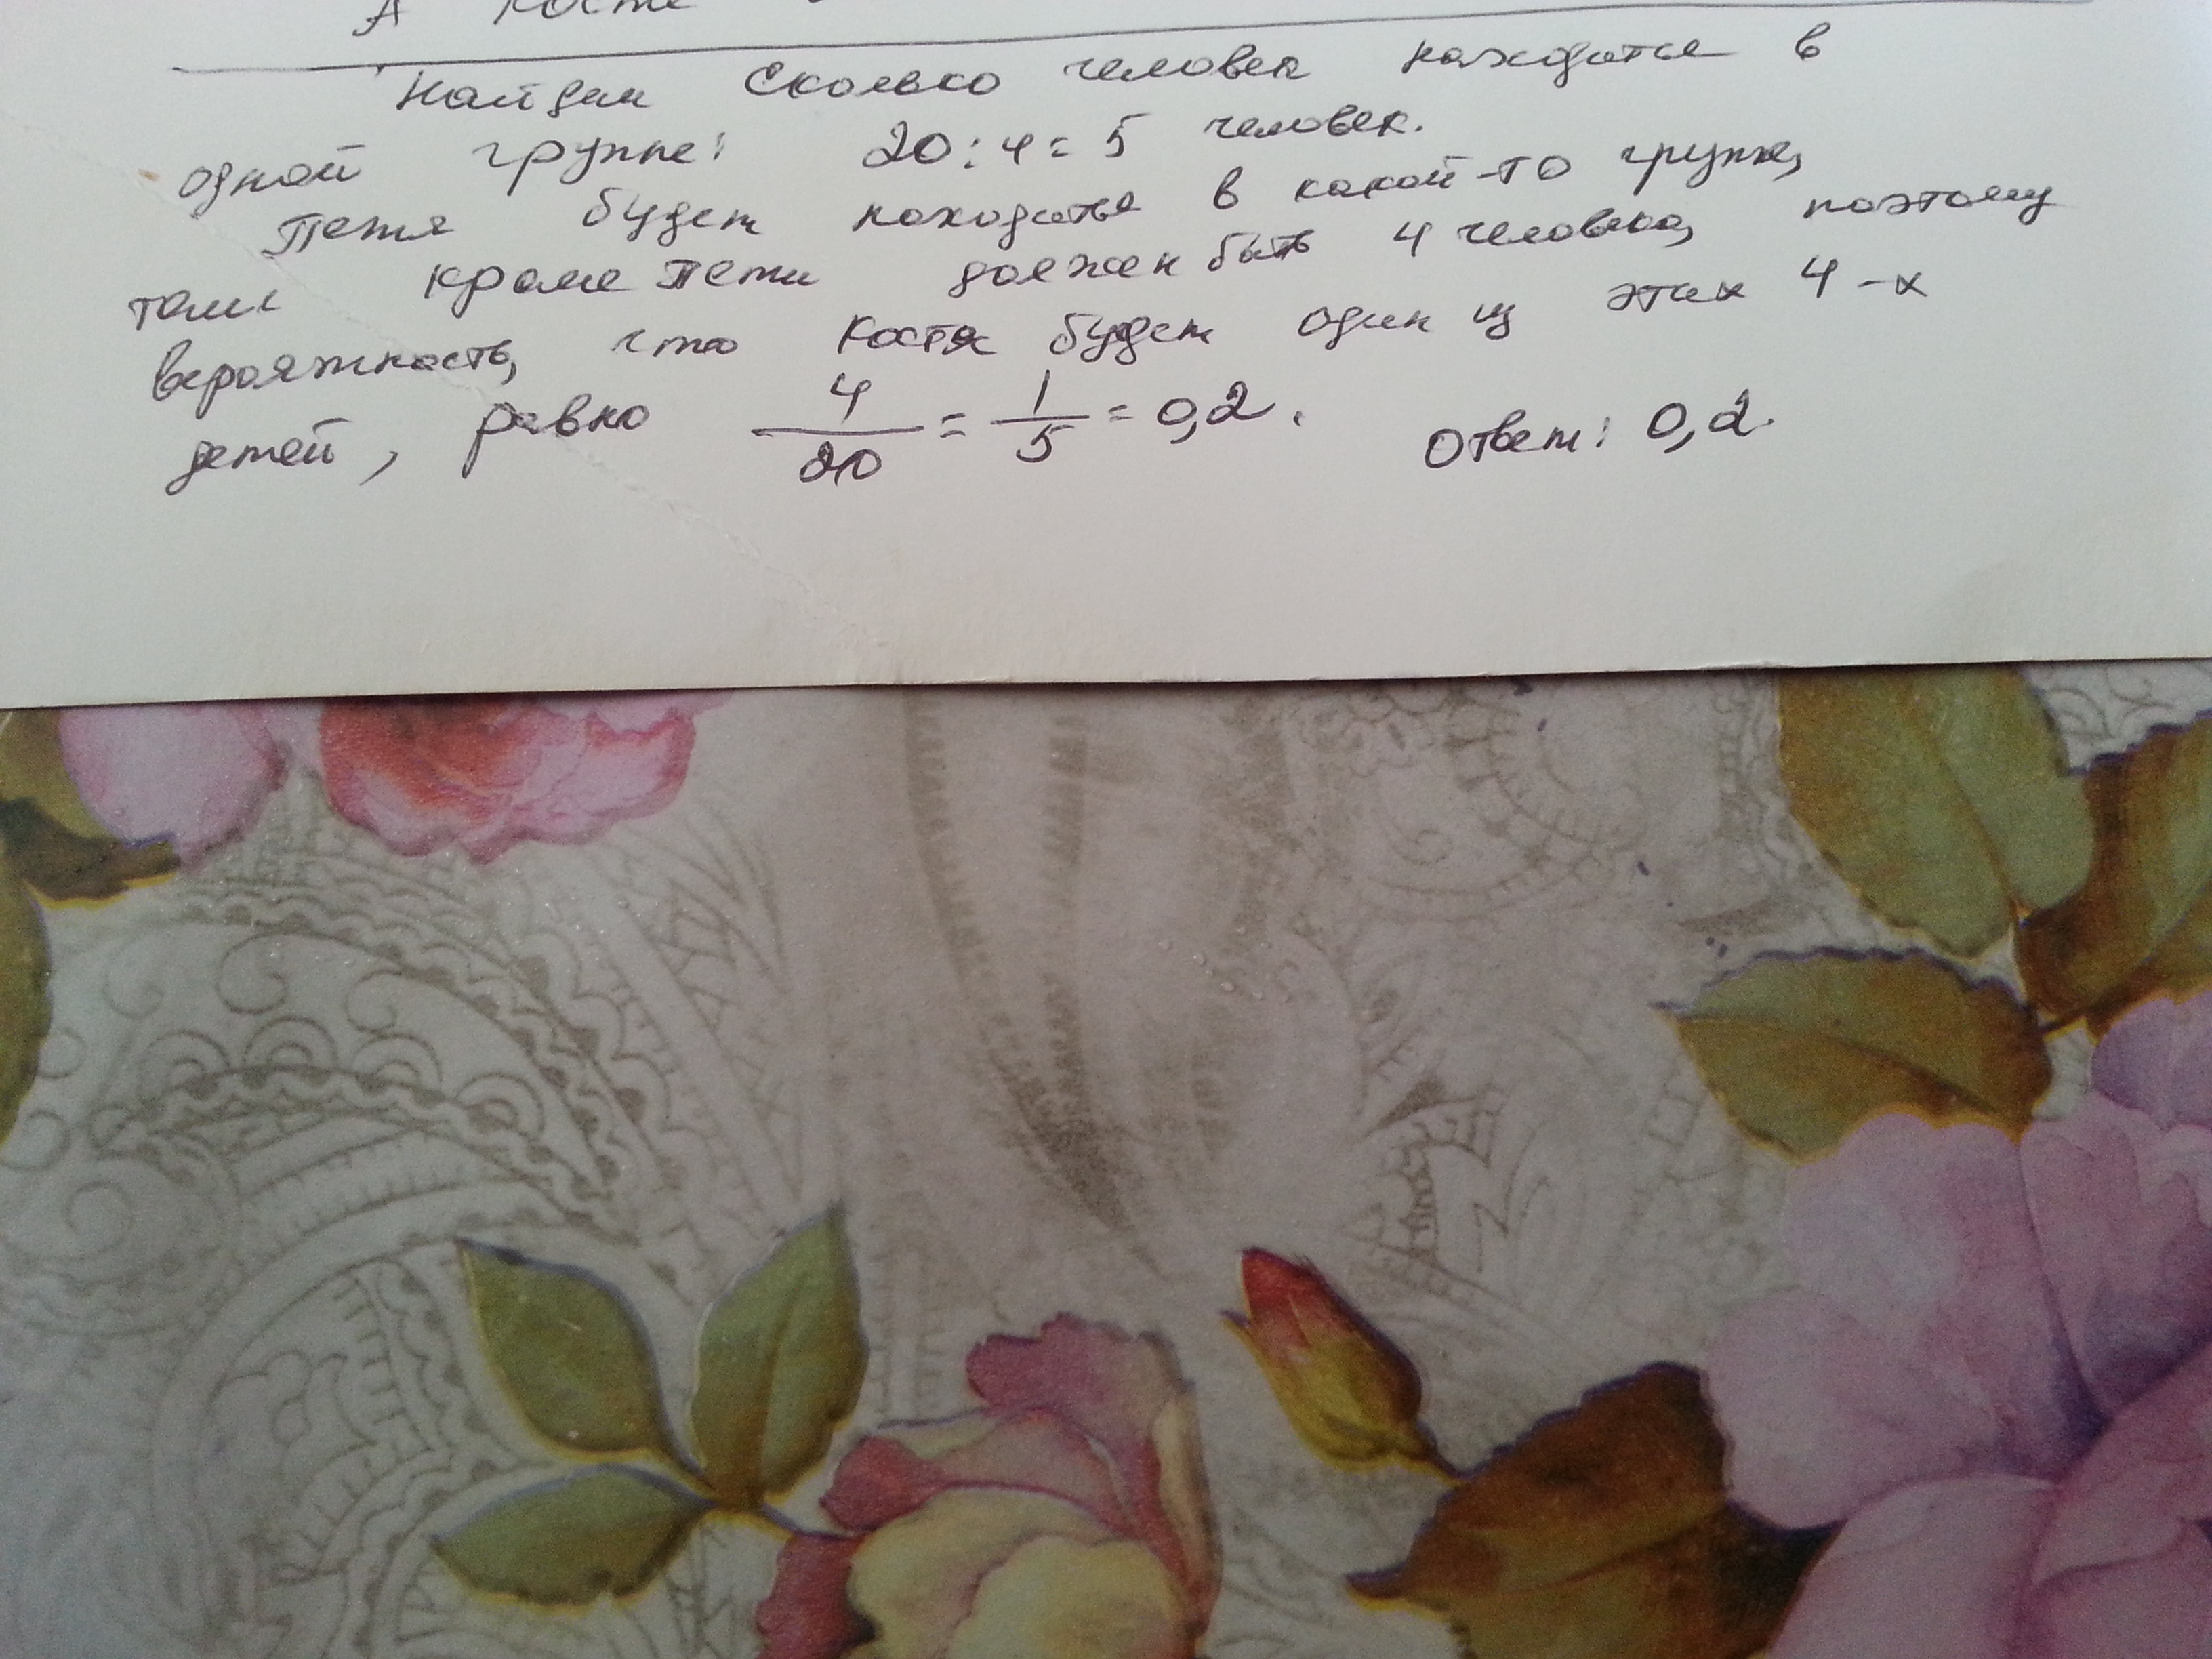 А Косте
Найдем сколько человек находится в
одной группе: 20:4=5 человек.
Петя будет находиться в какой-то группе,
там кроме Пети должен быть 4 человека, поэтому
вероятность, что Костя будет один из этих 4-х
детей, равно 4/20 = 1/5 = 0,2. Ответ: 0,2.